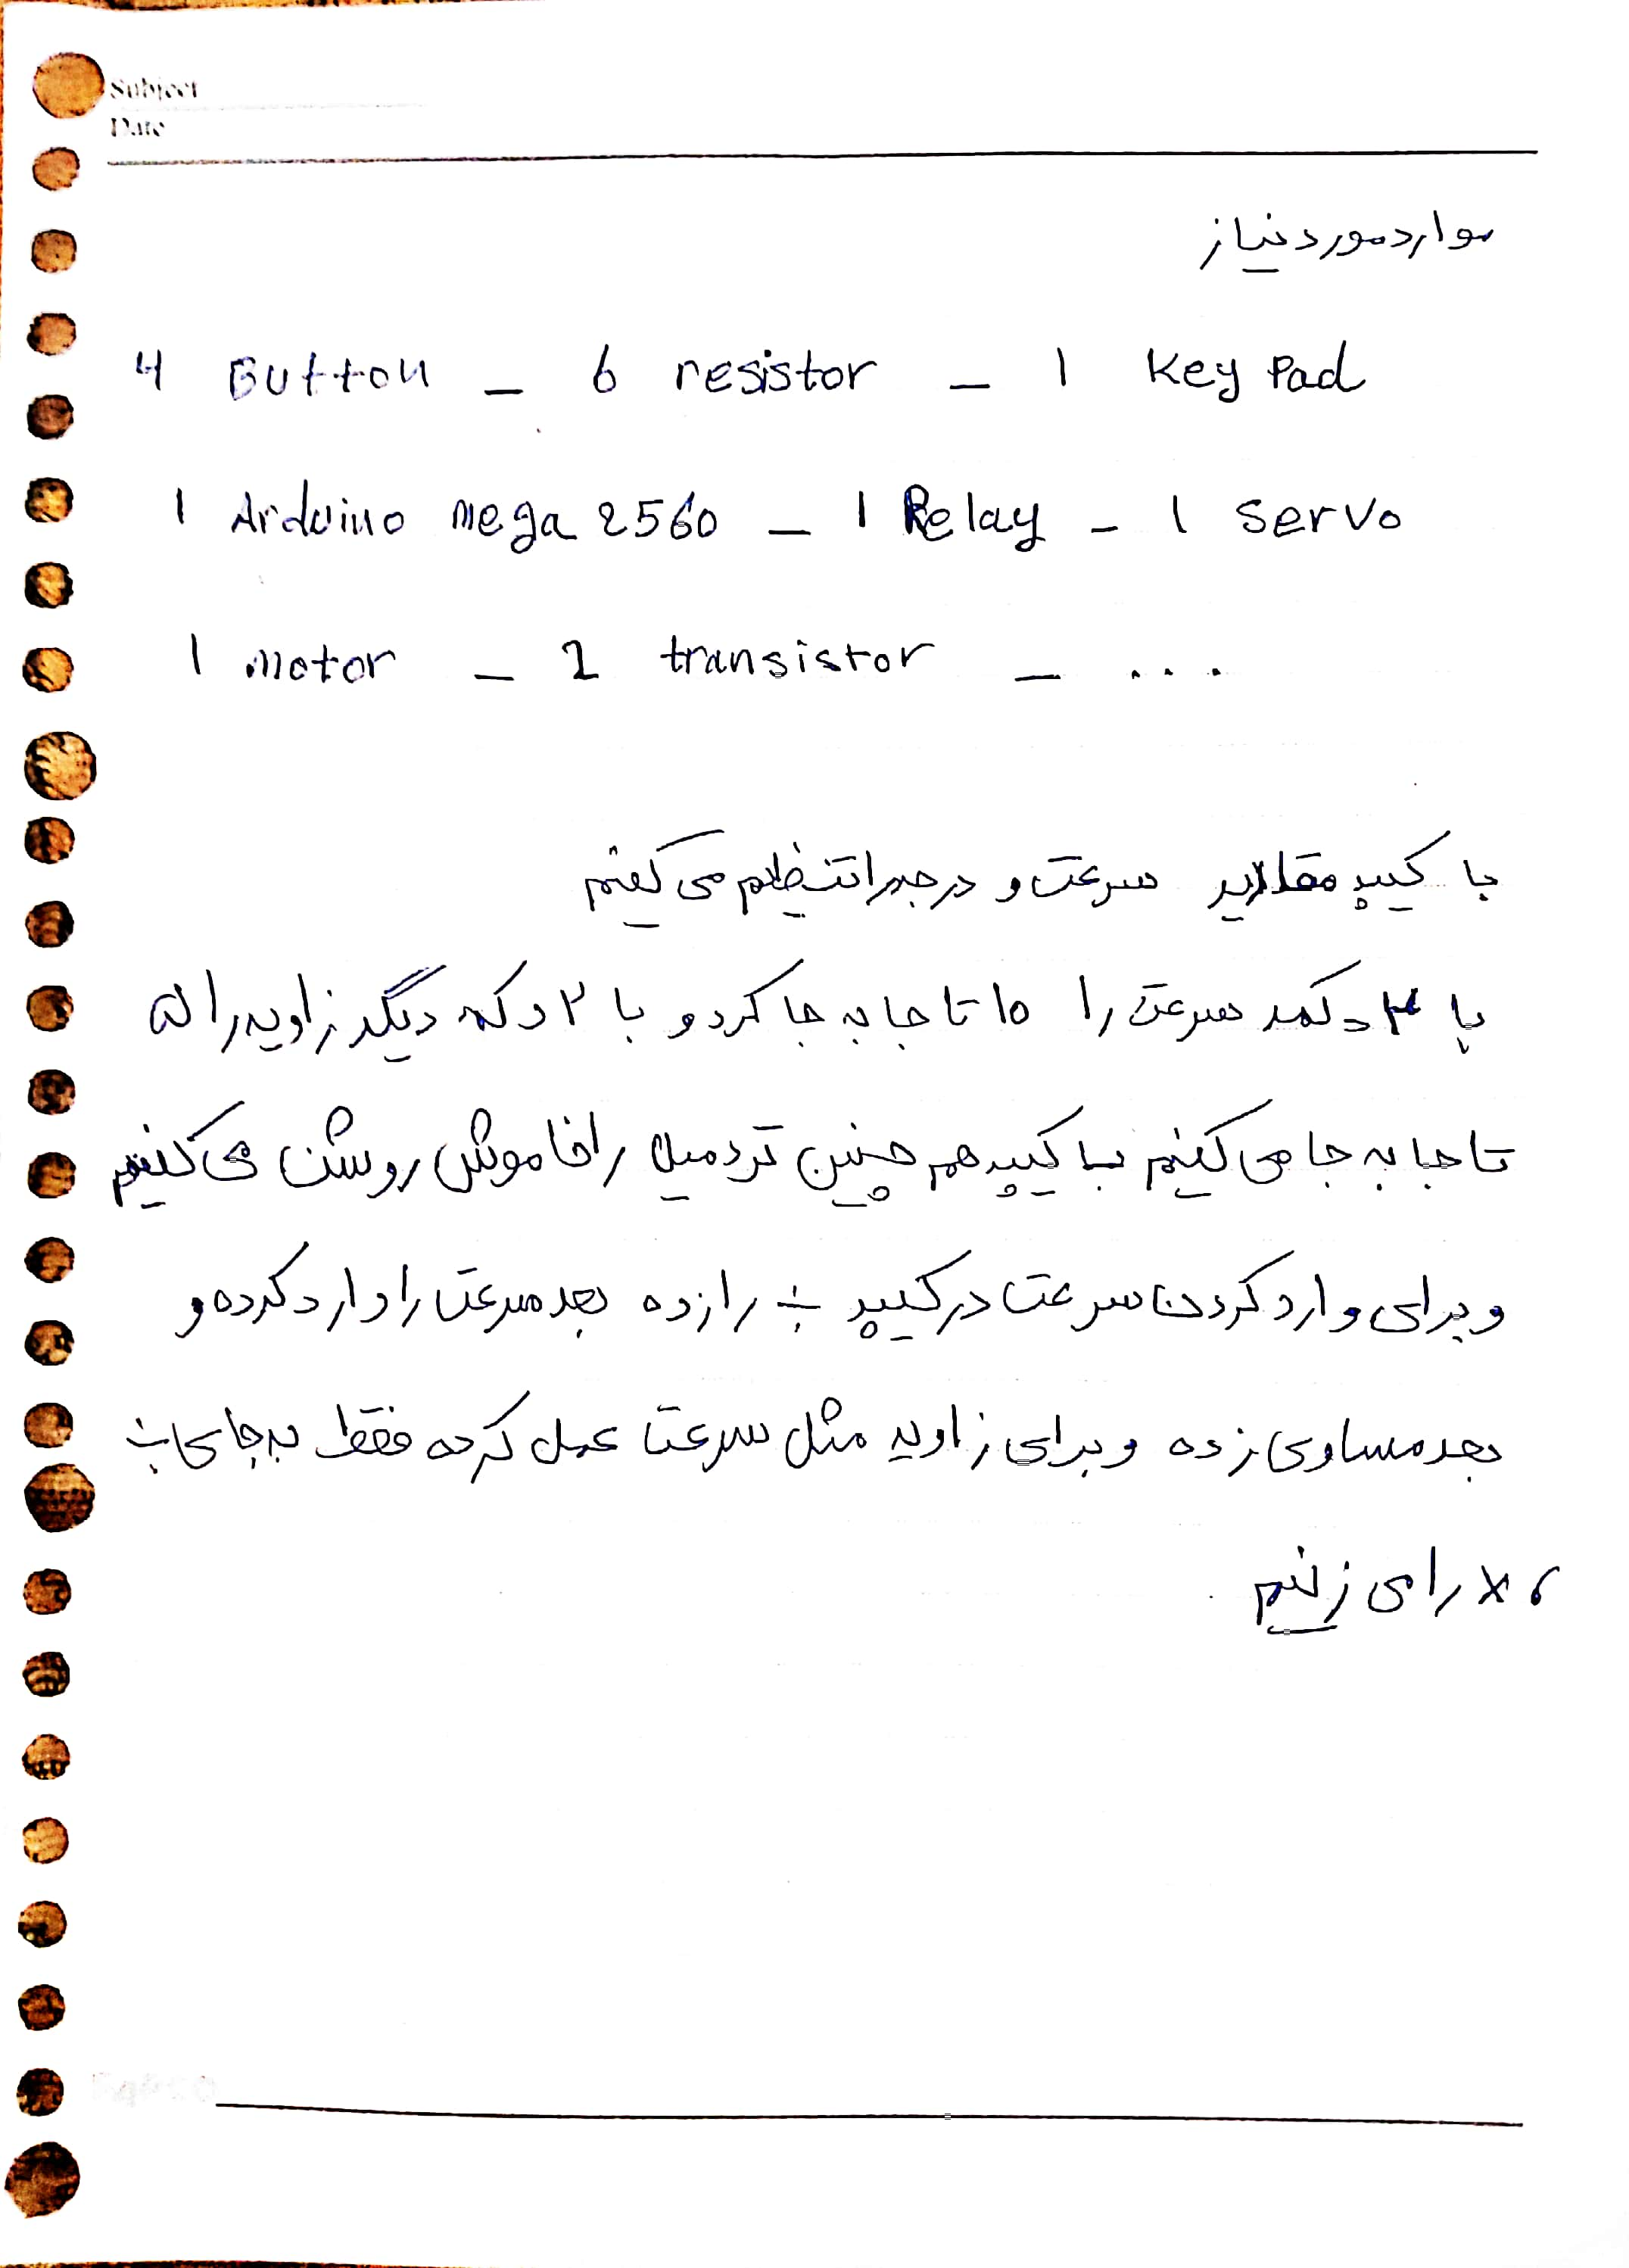 Subject
Date
موارد مورد نیاز
4 Button _ 6 resistor _ 1 Key Pad
1 Arduino mega 2560 _ 1 Relay _ 1 servo
1 motor _ 2 transistor _ ...
با کیپد مقادیر سرعت و درجه را تنظیم می کنیم
با ۲ دکمه سرعت را ۱۵ تا جا به جا کرد و با ۲ دکمه دیگر زاویه را ۵
تا جا به جا می کنیم با کیپد هم چنین تردمیل را خاموش روشن می کنیم
و برای وارد کردن سرعت در کیپد ÷ را زده بعد سرعت را وارد کرده و
بعد مساوی زده و برای زاویه مثل سرعت عمل کرده فقط به جای ÷
، × را می زنیم